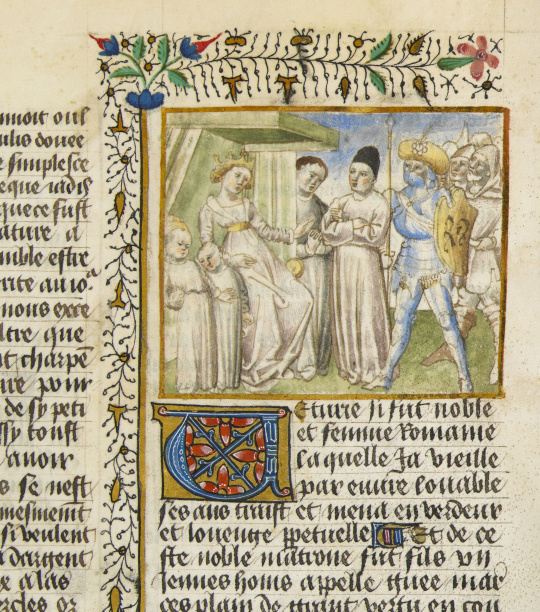 ulis douee
simplesce
eque iadis
quece fust
ature a
mble estre
nous exce
ltre que
charpe
pour
de sy peti
sy toust
auoir
s se nest
si veulent
a dargent
x a las
ercles or
Veturie si fut noble
et femme Romaine
laquelle Ja vieille
par euure louable
ses ans traist et mena en verdeur
et louenge ppetuelle Et de ce
ste noble matrone fut fils vn
Jennes homs appelle gnee mar
ces plain de grant vertu en con